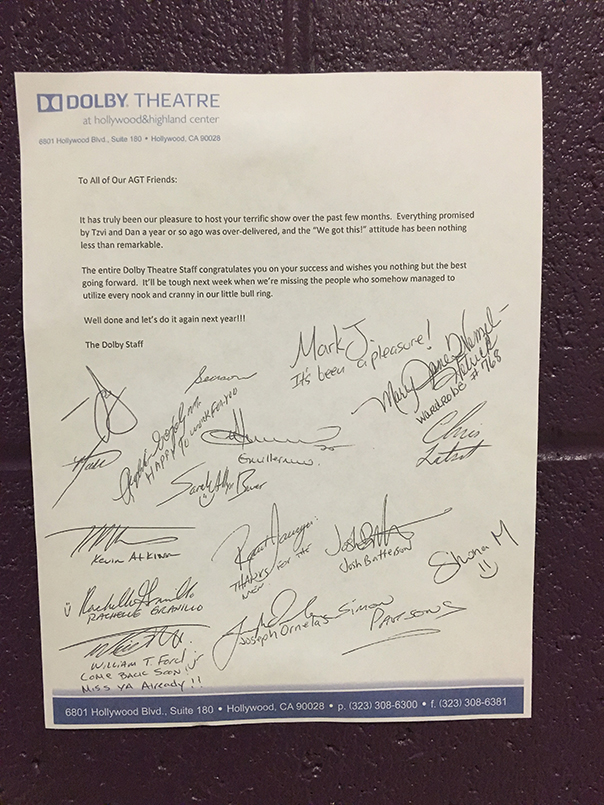 DOLBY THEATRE
at hollywood&highland center
6801 Hollywood Blvd., Suite 180 • Hollywood, CA 90028
To All of Our AGT Friends:
It has truly been our pleasure to host your terrific show over the past few months. Everything promised
by Tzvi and Dan a year or so ago was over-delivered, and the "We got this!" attitude has been nothing
less than remarkable.
The entire Dolby Theatre Staff congratulates you on your success and wishes you nothing but the best
going forward. It'll be tough next week when we're missing the people who somehow managed to
utilize every nook and cranny in our little bull ring.
Well done and let's do it again next year!!!
The Dolby Staff
Mark J.
It's been a pleasure!
Mary Jane
WARDROBE # 768
HAPPY TO WORK FOR YOU
Guillermo.
Chris
Sarah
KEVIN ATKINS
THANKS FOR THE
Josh Batterson
Shona M
RACHELLE GRANILLO
Joseph Ornelas
SIMON
PARSONS
WILLIAM T. FORD jr
COME BACK SOON!
MISS YA ALREADY!!
6801 Hollywood Blvd., Suite 180 • Hollywood, CA 90028 • p. (323) 308-6300 • f. (323) 308-6381